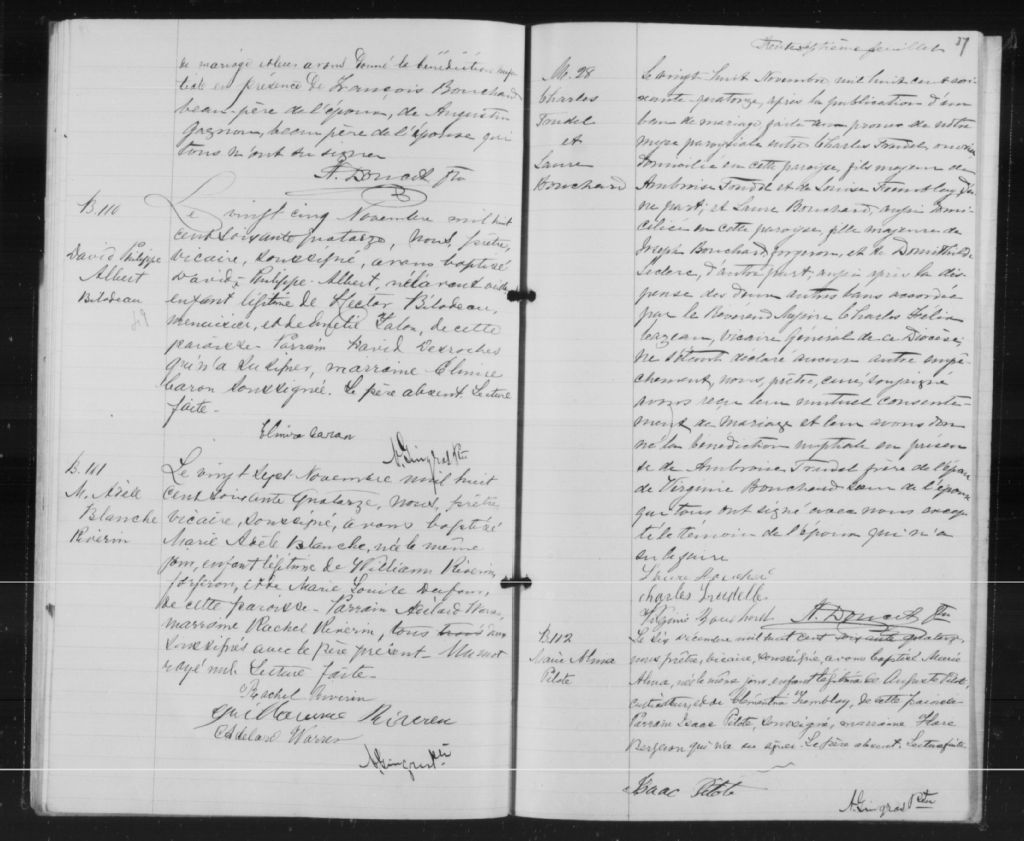 de mariage et leur avons donné la bénédiction nup
tiale en présence de François Bouchard
beau-père de l'époux, de Augustin
Gagnon, beau père de l'épouse qui
tous n'ont su signer
A. Doucet Ptre
B. 110
David Philippe
Albert
Bilodeau
Le vingt cinq Novembre mil huit
cent soixante quatorze, nous, prêtre,
vicaire, soussigné, avons baptisé
David, Philippe Albert, né la veille
enfant légitime de Hector Bilodeau,
menuisier, et de Talon, de cette
paroisse. Parrain David Desroches
qui n'a su signer, marraine Elmire
Caron soussignée. Le père absent. Lecture
faite.
Elmire Caron
A. Gingras Ptre
B. 111
M. Adèle
Blanche
Riverin
Le vingt sept Novembre mil huit
cent soixante quatorze, nous, prêtre
vicaire, soussigné, avons baptisé
Marie Adèle Blanche, née le même
jour, enfant légitime de William Riverin,
forgeron, et de Marie Louise Dufour,
de cette paroisse. Parrain Adélard Warren,
marraine Rachel Riverin, tous trois
soussignés avec le père présent. Un mot
rayé nul. Lecture faite.
Rachel Riverin
Guillaume Riveren
Adelard Warren
A. Gingras Ptre
Trente septième feuillet 37
M. 28
Charles
Trudel
et
Laure
Bouchard
Le vingt huit Novembre mil huit cent soi
xante quatorze, après la publication d'un
ban de mariage faite au prône de notre
messe paroissiale entre Charles Trudel,
domicilié en cette paroisse, fils majeur de
Ambroise Trudel et de Louise Tremblay, d'u
ne part; et Laure Bouchard, aussi domi
ciliée en cette paroisse, fille majeure de
Joseph Bouchard forgeron, et de
Leclerc, d'autre part, aussi après la dis
pense des deux autres bans accordée
par le Révérend Messire Charles Félix
Cazeau, vicaire Général de ce Diocèse;
ne s'étant déclaré aucun autre empê
chement, nous, prêtre, curé soussigné
avons reçu leur mutuel consente
ment de mariage et leur avons don
né la bénédiction nuptiale en présen
ce de Ambroise Trudel frère de l'époux
de Virginie Bouchard sœur de l'épouse
que tous ont signé avec nous excep
té le témoin de l'époux qui n'a
su le faire
Laure Bouchard
Charles Trudelle
Virginie Bouchard A. Doucet Ptre
B. 112
Marie Alma
Pilote
Le six Décembre mil huit cent soixante quatorze,
nous prêtre, vicaire, soussigné, avons baptisé Marie
Alma, née le même jour, enfant légitime de Auguste Pilote
cultivateur, et de Clémentine Tremblay, de cette paroisse.
Parrain Isaac Pilote, soussigné, marraine Flore
Bergeron qui n'a su signer. Le père absent. Lecture faite.
Isaac Pilote
A. Gingras Ptre